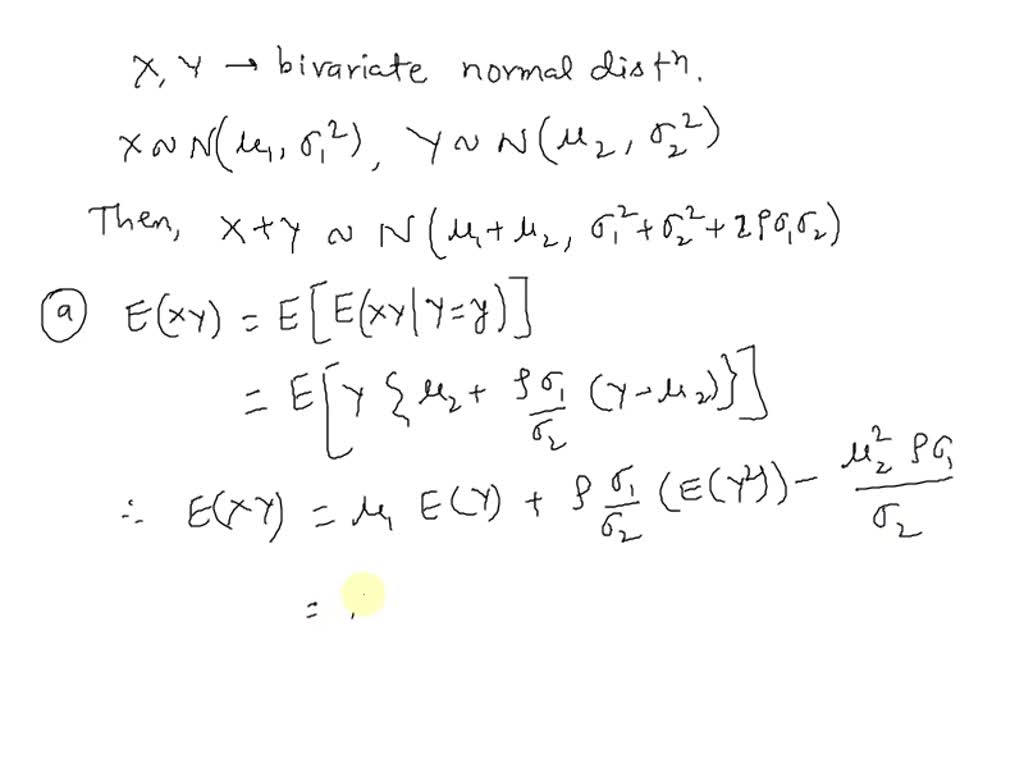 X, Y → bivariate normal distⁿ.
X ~ N(μ₁, σ₁²), Y ~ N(μ₂, σ₂²)
Then, X+Y ~ N(μ₁+μ₂, σ₁²+σ₂²+2ρσ₁σ₂)
(a) E(XY) = E[E(XY|Y=y)]
= E[Y{μ₂ + ρσ₁/σ₂ (Y-μ₂)}]
∴ E(XY) = μ₁ E(Y) + ρ σ₁/σ₂ (E(Y²)) - μ₂² ρσ₁/σ₂
=